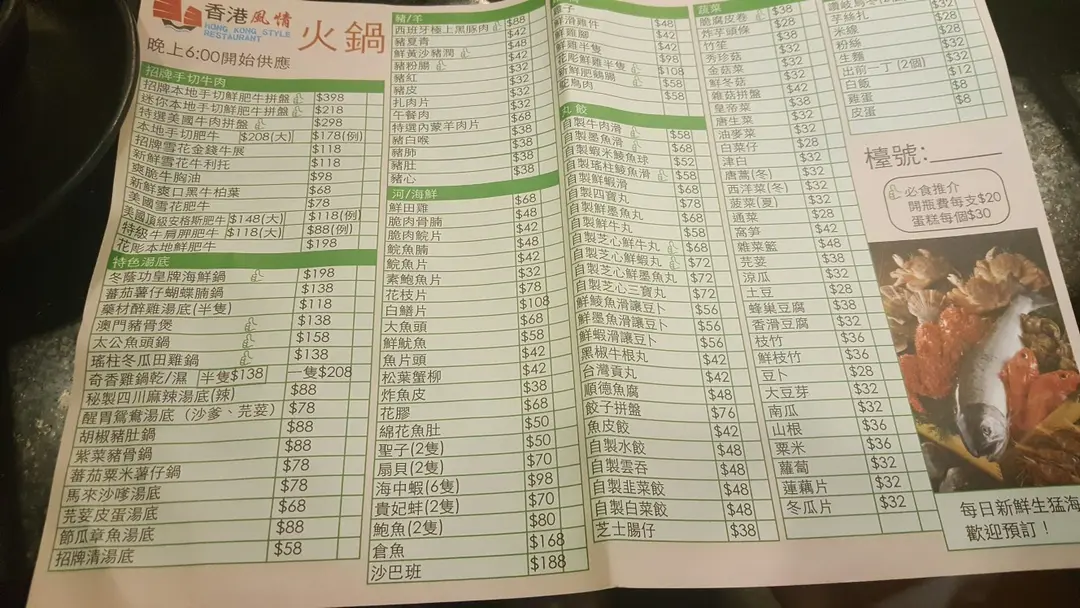 香港風情
HONG KONG STYLE
RESTAURANT
火鍋
晚上6:00開始供應
招牌手切牛肉
招牌本地手切鮮肥牛拼盤 $398
迷你本地手切鮮肥牛拼盤 $218
特選美國牛肉拼盤 $298
本地手切肥牛 $208(大) $178(例)
招牌雪花金錢牛展 $118
新鮮雪花牛利托 $118
爽脆牛胸油 $98
新鮮爽口黑牛柏葉 $68
美國雪花肥牛 $78
美國頂級安格斯肥牛 $148(大) $118(例)
特級牛肩胛肥牛 $118(大) $88(例)
花彫本地鮮肥牛 $198
特色湯底
冬蔭功皇牌海鮮鍋 $198
蕃茄薯仔蝴蝶腩鍋 $138
藥材醉雞湯底(半隻) $118
澳門豬骨煲 $138
太公魚頭鍋 $158
瑤柱冬瓜田雞鍋 $138
奇香雞鍋乾/濕 半隻$138 一隻$208
秘製四川麻辣湯底(辣) $88
醒胃鴛鴦湯底（沙爹、芫荽） $78
胡椒豬肚鍋 $88
紫菜豬骨鍋 $88
蕃茄粟米薯仔鍋 $78
馬來沙嗲湯底 $78
芫荽皮蛋湯底 $68
節瓜草魚湯底 $88
招牌清湯底 $58
豬/羊
西班牙極上黑豚肉 $88
豬夏青 $42
鮮黃沙豬潤 $48
豬粉腸 $42
豬紅 $32
豬皮 $32
扎肉片 $42
午餐肉 $32
特選內蒙羊肉片 $68
豬白喉 $38
豬肺 $38
豬肚 $38
豬心 $38
河/海鮮
鮮田雞 $68
脆肉骨腩 $48
脆肉鯇片 $42
鯇魚腩 $48
鯇魚片 $42
素鮑魚片 $32
花枝片 $78
白鱔片 $108
大魚頭 $68
鮮魷魚 $58
魚片頭 $42
松葉蟹柳 $42
炸魚皮 $38
花膠 $68
綿花魚肚 $50
聖子(2隻) $50
扇貝(2隻) $70
海中蝦(6隻) $98
貴妃蚌(2隻) $70
鮑魚(2隻) $80
倉魚 $168
沙巴班 $188
鮮滑雞件 $48
鮮雞腳 $42
鮮雞半隻 $98
花彫鮮雞半隻 $108
新鮮肥鵝腸 $58
鴕鳥肉 $58
丸餃
自製牛肉滑 $58
自製墨魚滑 $68
自製蝦米鯪魚球 $52
自製瑤柱鯪魚滑 $58
自製鮮蝦滑 $68
自製四寶丸 $78
自製鮮墨魚丸 $68
自製鮮牛丸 $58
自製芝心鮮牛丸 $68
自製芝心鮮蝦丸 $72
自製芝心鮮墨魚丸 $72
自製芝心三寶丸 $72
鮮鯪魚滑讓豆卜 $56
鮮墨魚滑讓豆卜 $56
鮮蝦滑讓豆卜 $56
黑椒牛根丸 $42
台灣貢丸 $42
順德魚腐 $48
餃子拼盤 $76
魚皮餃 $42
自製水餃 $48
自製雲吞 $48
自製韭菜餃 $48
自製白菜餃 $48
芝士腸仔 $38
蔬菜
脆腐皮卷 $38
炸芋頭條 $28
竹笙 $38
秀珍菇 $32
金菇菜 $32
鮮冬菇 $32
雜菇拼盤 $42
皇帝菜 $38
唐生菜 $28
油麥菜 $32
白菜仔 $28
津白 $32
唐蒿(冬) $32
西洋菜(冬) $32
菠菜(夏) $32
通菜 $28
窩笋 $42
雜菜籃 $48
芫荽 $38
涼瓜 $32
土豆 $28
蜂巢豆腐 $38
香滑豆腐 $32
枝竹 $36
鮮枝竹 $36
豆卜 $28
大豆芽 $32
南瓜 $32
山根 $36
粟米 $36
蘿蔔 $32
蓮藕片 $32
冬瓜片 $32
芋絲扎
米線
粉絲
生麵
出前一丁(2個)
白飯
雞蛋
皮蛋
檯號:
必食推介
開瓶費每支$20
蛋糕每個$30
每日新鮮生猛海
歡迎預訂！